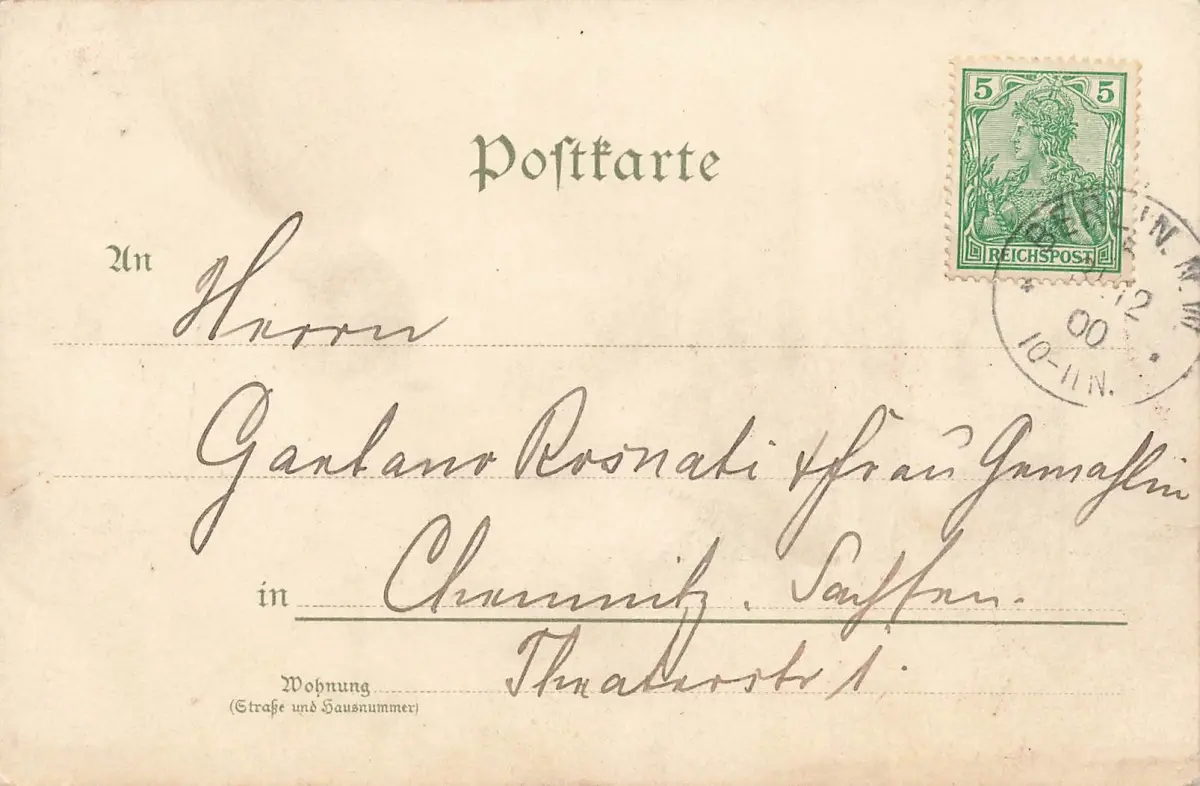 5 5
Postkarte
REICHSPOST
BERLIN. N.W.
12
00
10-11 N.
An Herrn
Gaetano Rosnati & Frau Gemahlin
in Chemnitz. Sachsen.
Wohnung Theaterstr 1.
(Straße und Hausnummer)